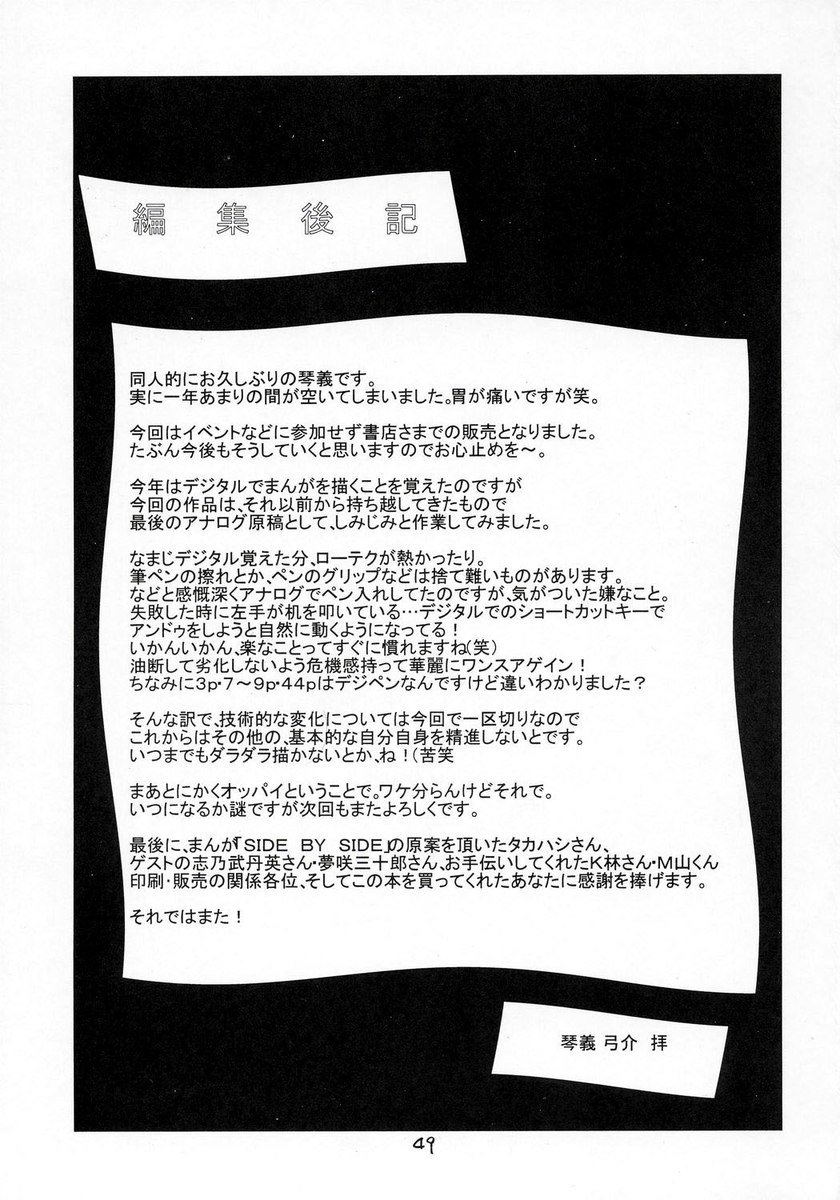 編集後記
同人的にお久しぶりの琴義です。
実に一年あまりの間が空いてしまいました。胃が痛いですが笑。
今回はイベントなどに参加せず書店さまでの販売となりました。
たぶん今後もそうしていくと思いますのでお心止めを～。
今年はデジタルでまんがを描くことを覚えたのですが
今回の作品は、それ以前から持ち越してきたもので
最後のアナログ原稿として、しみじみと作業してみました。
なまじデジタル覚えた分、ローテクが熱かったり。
筆ペンの擦れとか、ペンのグリップなどは捨て難いものがあります。
などと感慨深くアナログでペン入れしてたのですが、気がついた嫌なこと。
失敗した時に左手が机を叩いている…デジタルでのショートカットキーで
アンドゥをしようと自然に動くようになってる！
いかんいかん、楽なことってすぐに慣れますね（笑）
油断して劣化しないよう危機感持って華麗にワンスアゲイン！
ちなみに3p・7～9p・44pはデジペンなんですけど違いわかりました？
そんな訳で、技術的な変化については今回で一区切りなので
これからはその他の、基本的な自分自身を精進しないとです。
いつまでもダラダラ描かないとか、ね！（苦笑
まあとにかくオッパイということで。ワケ分らんけどそれで。
いつになるか謎ですが次回もまたよろしくです。
最後に、まんが「SIDE BY SIDE」の原案を頂いたタカハシさん、
ゲストの志乃武丹英さん・夢咲三十郎さん、お手伝いしてくれたK林さん・M山くん
印刷・販売の関係各位、そしてこの本を買ってくれたあなたに感謝を捧げます。
それではまた！
琴義 弓介 拝
49